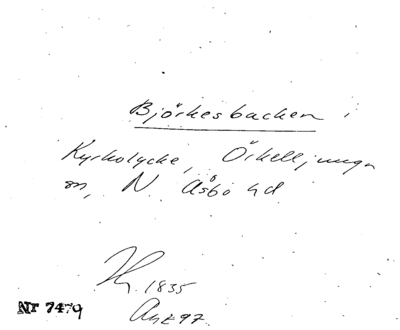 Björkesbacken
Kyrkolycke, Örkelljunga
sn, N Åsbo hd
1835
Nr 7479